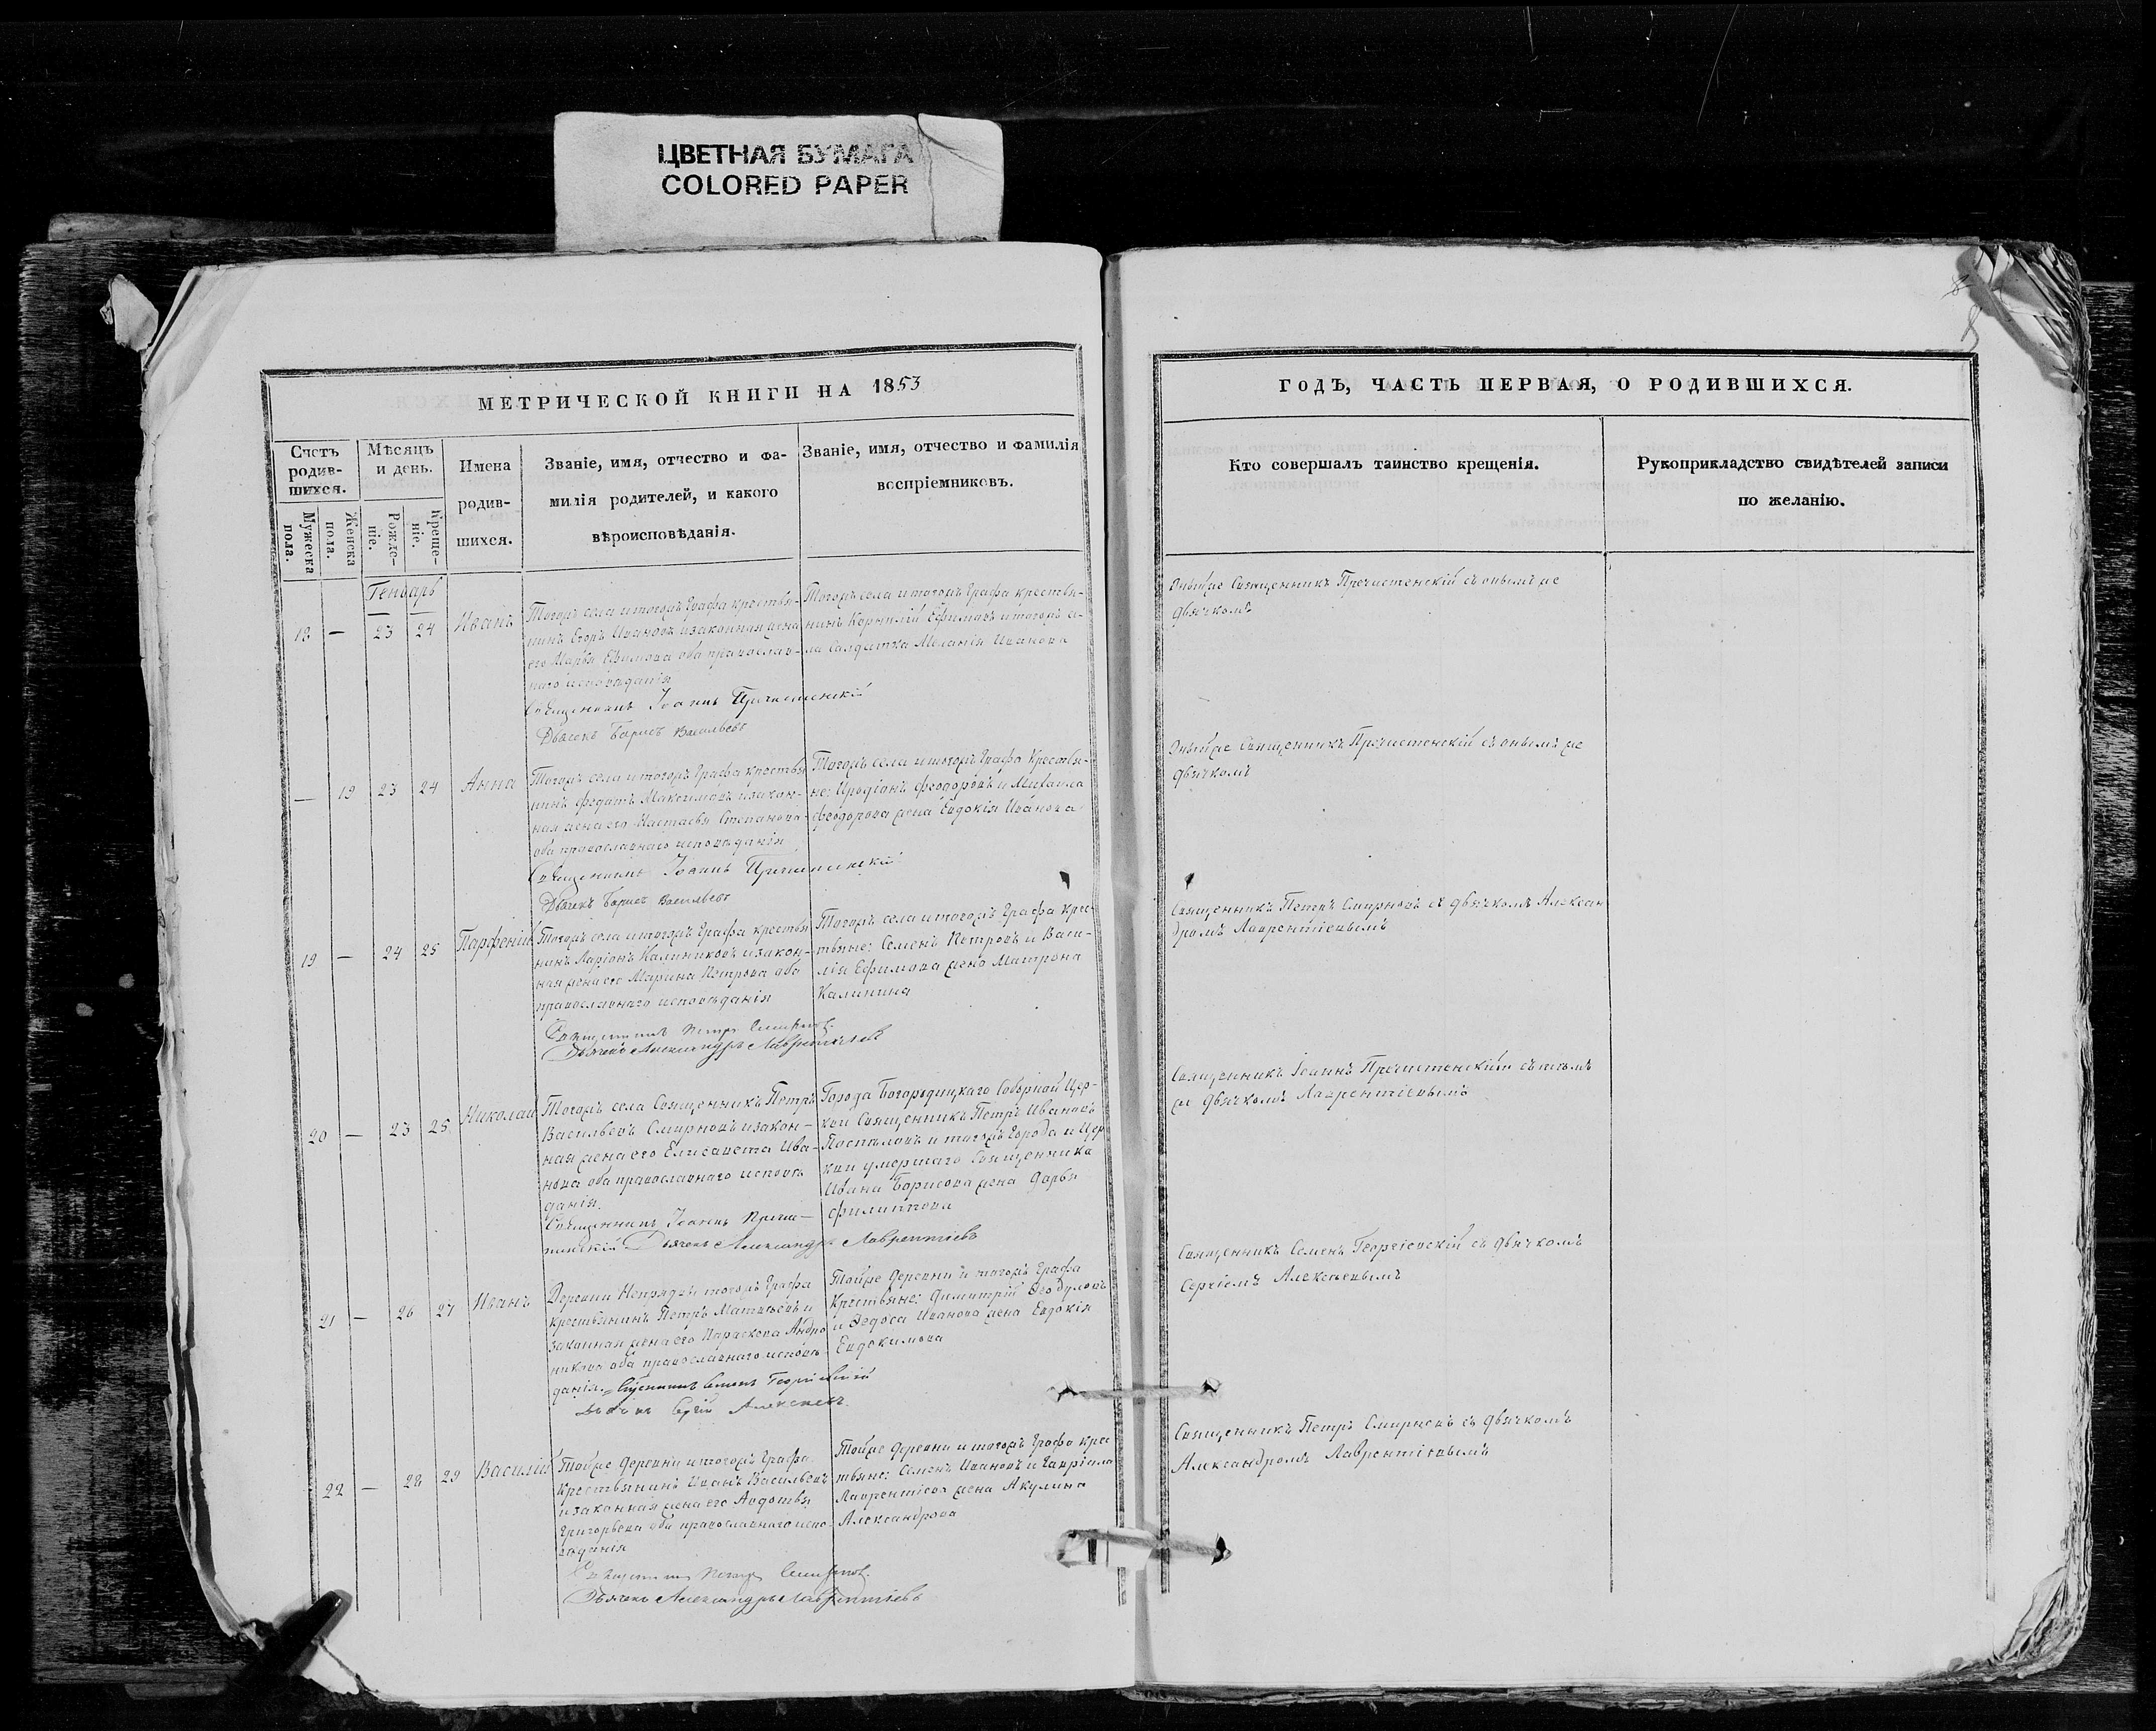 ЦВЕТНАЯ БУМАГА
COLORED PAPER
8
МЕТРИЧЕСКОЙ КНИГИ НА 1853
Счетъ родив-шихся.
Мужеска пола.
Женска пола.
Мѣсяцъ и день.
Рожде-ніе.
Креще-ніе.
Имена
родив-
шихся.
Званіе, имя, отчество и фа-
милія родителей, и какого
вѣроисповѣданія.
Званіе, имя, отчество и фамилія
воспріемниковъ.
Генварь
18 — 23 24 Иванъ
Тогожъ села и тогожъ Графа крестья-
нинъ Егоръ Ивановъ и законная жена
его Марья Ефимова оба православ-
наго исповѣданія
Священникъ Іоаннъ Пречистенскій
Дьячекъ Борисъ Васильевъ
Тогожъ села и тогожъ Графа крестья-
нинъ Корнилій Ефимовъ и тогожъ се-
ла Салдатка Меланія Иванова
— 19 23 24 Анна
Тогожъ села и тогожъ Графа крестья
нинъ Федотъ Максимовъ и закон-
ная жена его Настасья Степанова
оба православнаго исповѣданія
Священникъ Іоаннъ Пречистенскій
Дьячекъ Борисъ Васильевъ
Тогожъ села и тогожъ Графа Крестья-
не: Иродіонъ Феодоровъ и Михаила
Феодорова жена Евдокія Иванова
19 — 24 25 Парфеній
Тогожъ села и тогожъ Графа крестья
нинъ Ларіонъ Калиниковъ и закон-
ная жена его Марина Петрова оба
православнаго исповѣданія
Священникъ Петръ Смирновъ.
Дьячекъ Александръ Лаврентьевъ
Тогожъ села и тогожъ Графа Крес-
тьяне: Семенъ Петровъ и Васи-
лія Ефимова жена Матрона
Калинина
20 — 23 25 Николай
Тогожъ села Священникъ Петръ
Васильевъ Смирновъ и закон-
ная жена его Елисавета Ива-
нова оба православнаго исповѣ
данія.
Священникъ Іоаннъ Пречи-
стенскій Дьячекъ Александръ Лаврентіевъ
Города Богородицкаго Соборной Цер-
кви Священникъ Петръ Ивановъ
Поспѣловъ и тогожъ Города и Цер
кви умершаго Священника
Ивана Борисова жена Дарья
Филиппова
21 — 26 27 Иванъ
Деревни Непрядвы тогожъ Графа
крестьянинъ Петръ Матвѣевъ и
законная жена его Параскева Андро
никова оба православнаго исповѣ-
данія. Священникъ Семенъ Георгіевскій
Дьячекъ Сергій Алексѣевъ.
Тойже деревни и тогожъ Графа
Крестьяне: Димитрій Феодуловъ
и Федоса Иванова жена Евдокія
Евдокимова
22 — 28 29 Василій
Тойже деревни и тогожъ Графа
Крестьянинъ Иванъ Васильевъ
и законная жена его Авдотья
Григорьева оба православнаго испо-
вѣданія
Священникъ Петръ Смирновъ.
Дьячекъ Александръ Лаврентіевъ
Тойже деревни и тогожъ Графа крес
тьяне: Семенъ Ивановъ и Гавріила
Лаврентіева жена Акулина
Александрова
ГОДЪ, ЧАСТЬ ПЕРВАЯ, О РОДИВШИХСЯ.
Кто совершалъ таинство крещенія.
Рукоприкладство свидѣтелей записи
по желанію.
Онъ же Священникъ Пречистенскій съ онымъ же
дьячкомъ
Онъ же Священникъ Пречистенскій съ онымъ же
дьячкомъ
Священникъ Петръ Смирновъ съ дьячкомъ Алексан
дромъ Лаврентіевымъ
Священникъ Іоаннъ Пречистенскій съ тѣмъ
же дьячкомъ Лаврентіевымъ
Священникъ Семенъ Георгіевскій съ дьячкомъ
Сергіемъ Алексѣевымъ
Священникъ Петръ Смирновъ съ дьячкомъ
Александромъ Лаврентіевымъ